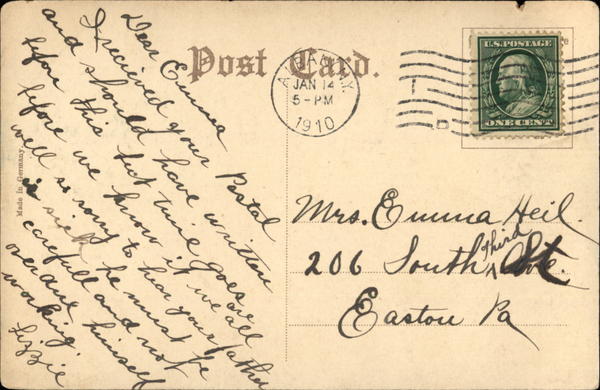 Post Card.
Made in Germany.
Dear Emma
I recieved your Postal
and should have written
before this but time goes
before we know it we all
well so sorry to hear your father
is sick he must be
carefull and not
over due himself
working.
Lizzie
ALBANY, N.Y.
JAN 14
5-PM
1910
U.S. POSTAGE
ONE CENT
Mrs. Emma Heil.
206 South Third St.
Easton Pa